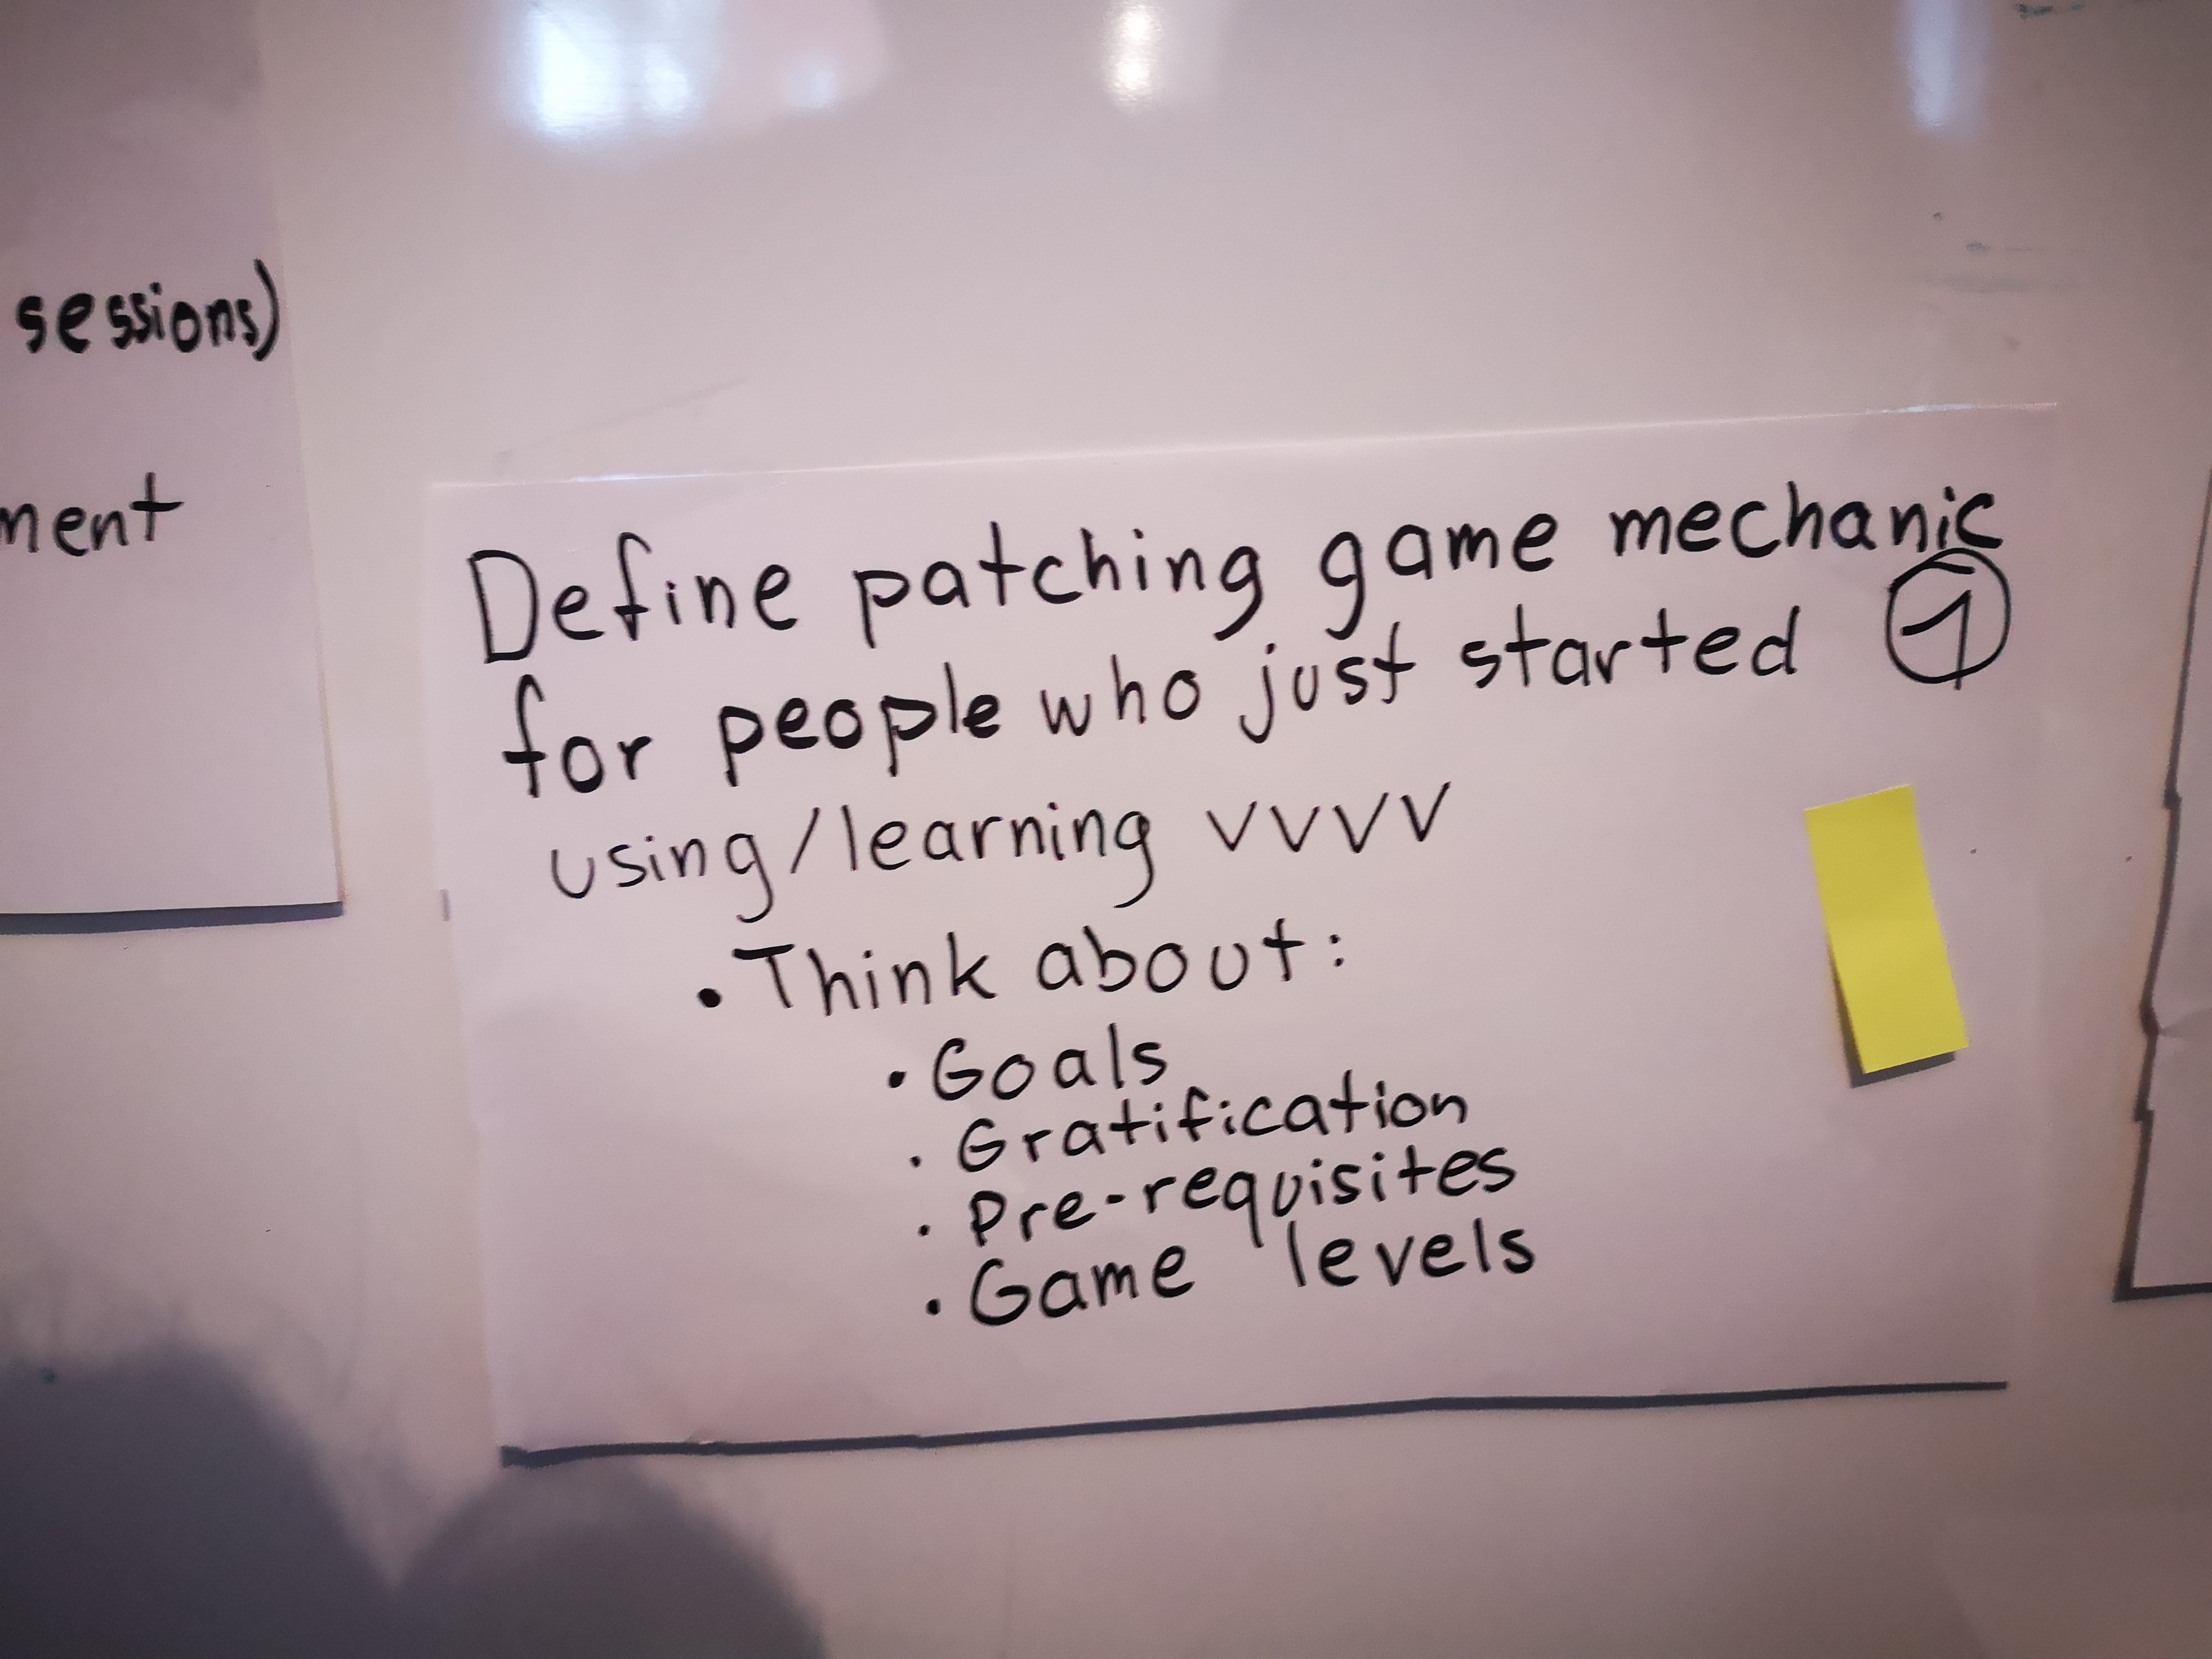 sessions)
ment
Define patching game mechanic
for people who just started ①
using/learning VVVV
• Think about:
• Goals
• Gratification
• Pre-requisites
• Game levels